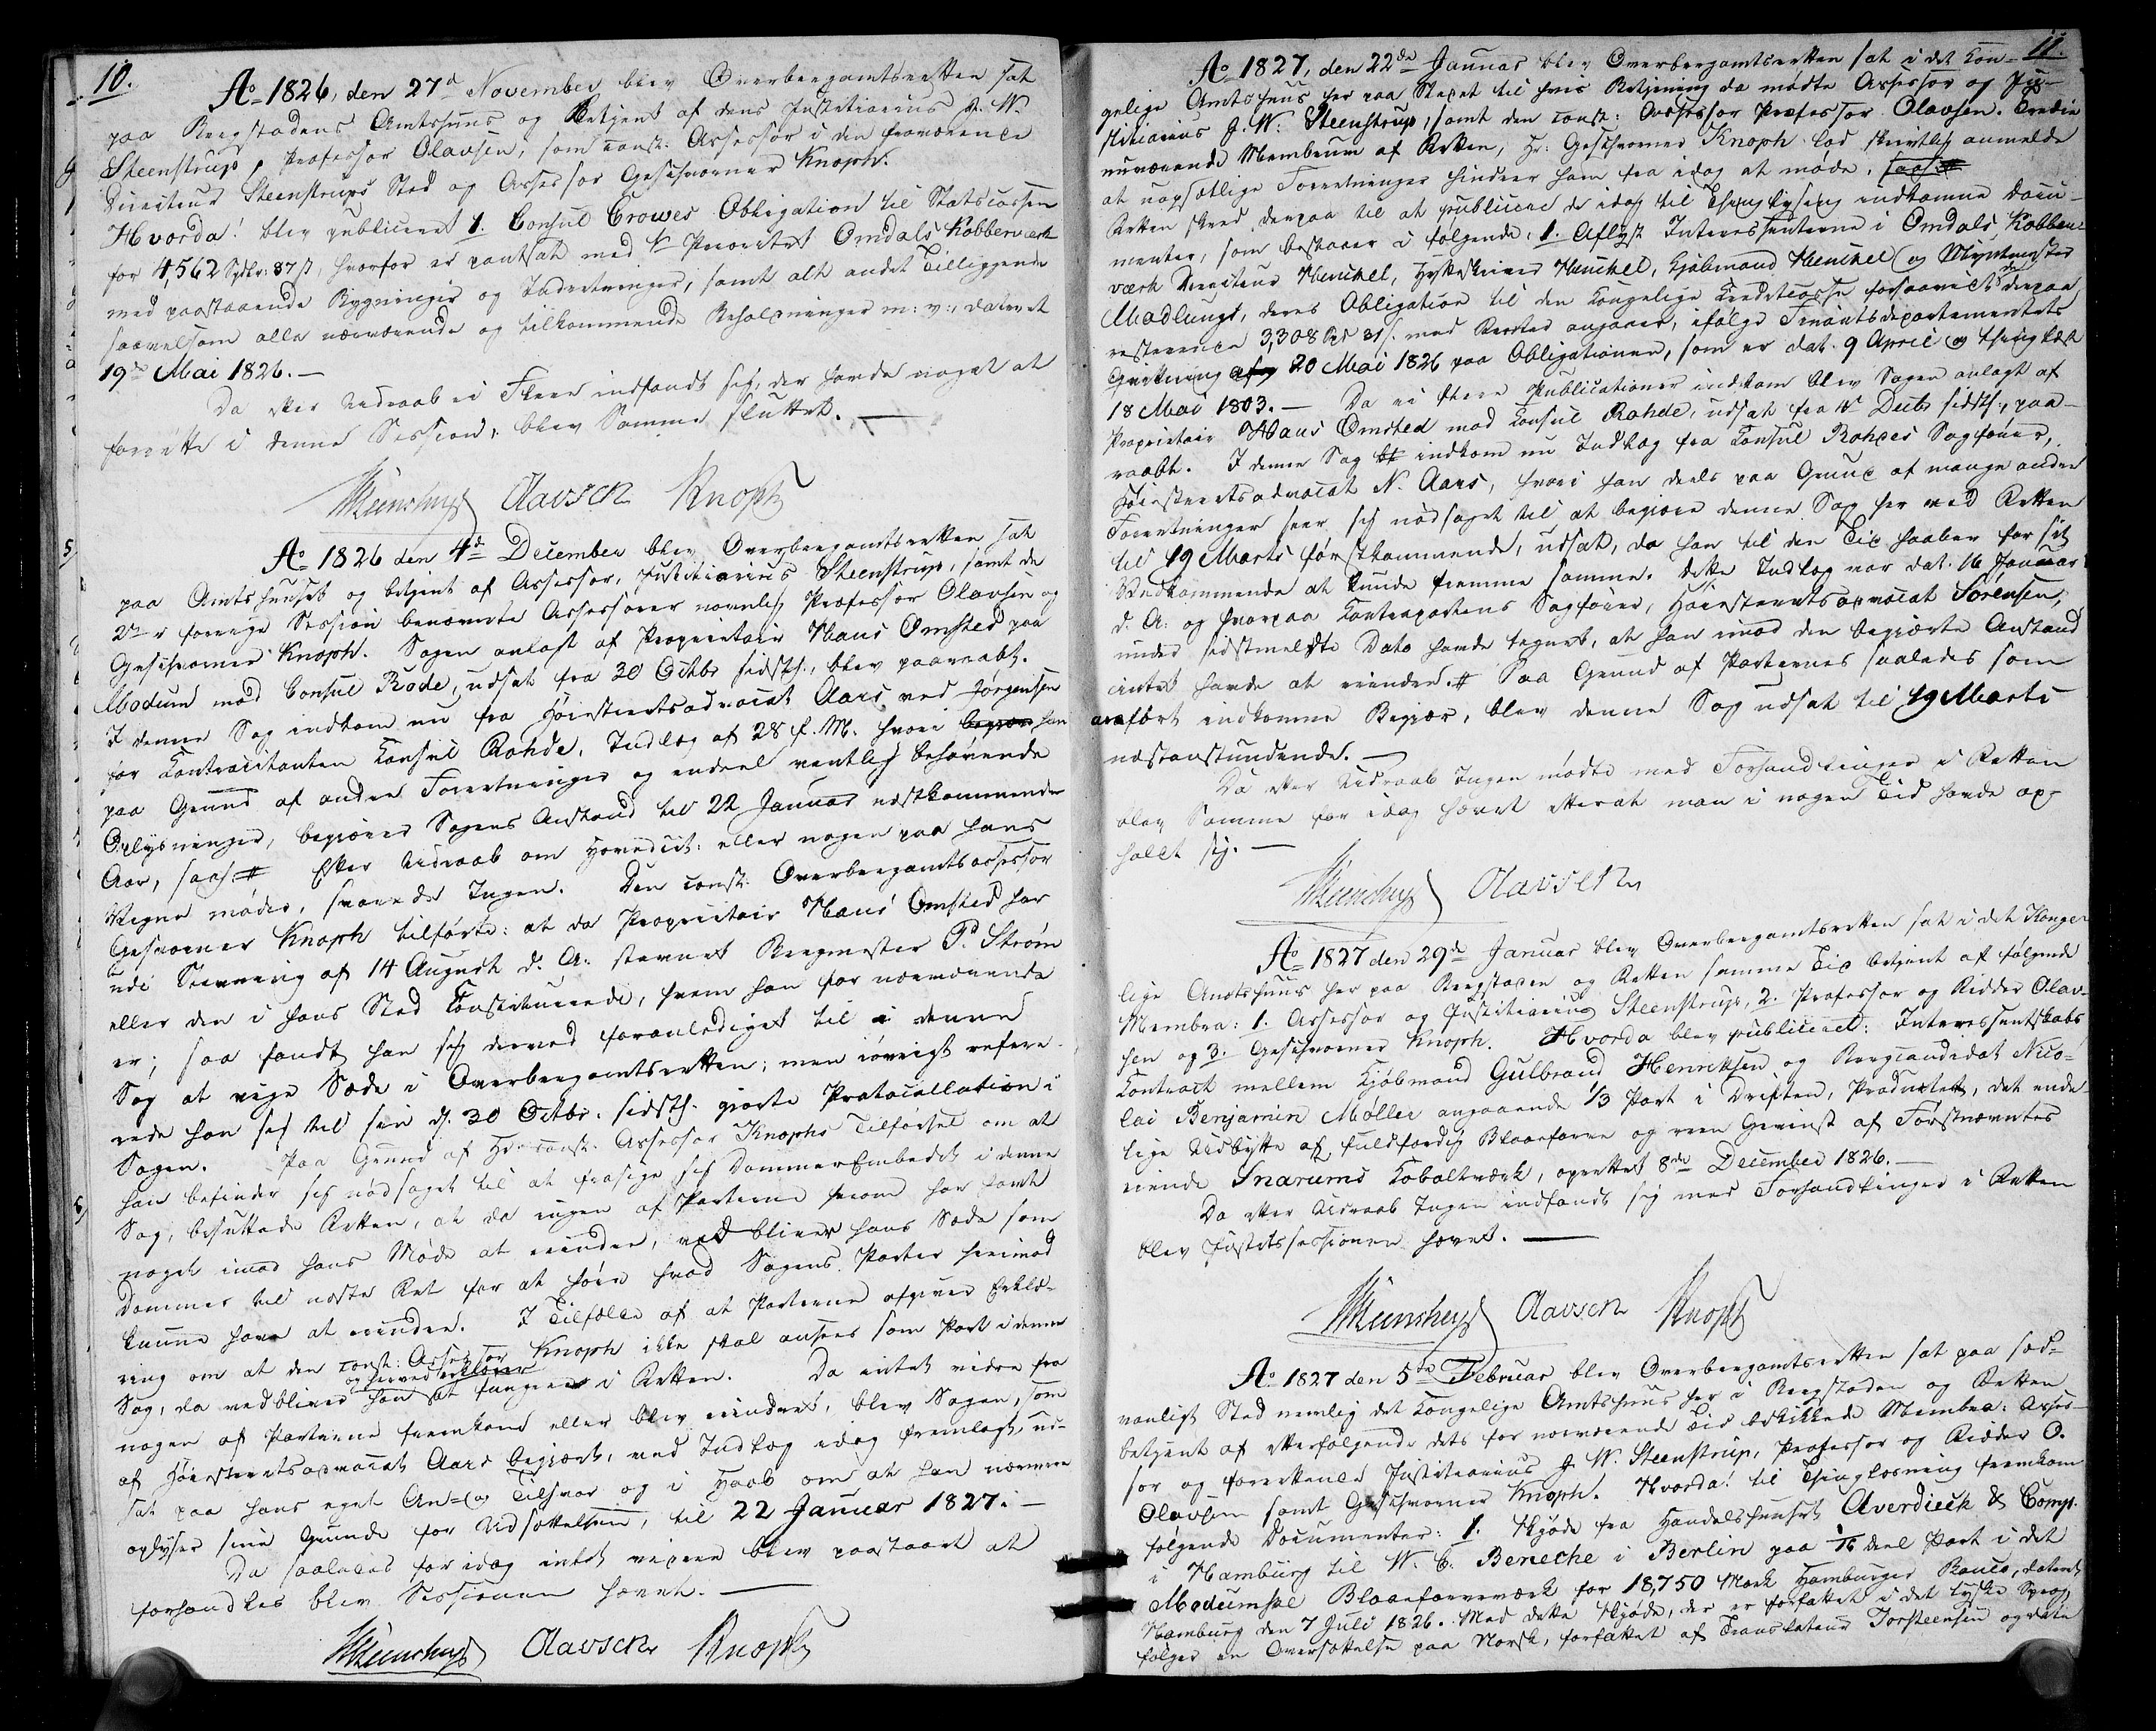 10.
Aº 1826, den 27d November blev Overbergamtsretten sat
paa Bergstadens Amtshuus og Betjent af dens Justitiarius J. W.
Steenstrup, Professor Olavsen, som const. Assessor i den fraværende
Directeur Steenstrups Sted og Assessor Geschworner Knoph.
Hvorda! blev publiceret 1. Consul Crowes Obligation til Statscassen
for 4,562 Spdlr. 87 ß, hvorfor er pantsat med 1ste Prioritet Omdals Kobberværk
med paastaaende Bygninger og Indretninger, samt alt andet Tilliggende
saavelsom alle nærværende og tilkommende Beholdninger m: v:, dateret
19de Mai 1826. —
Da efter Udraab ei Fleere indfandt sig, der havde noget at
forrette i denne Session, blev Samme sluttet. —
Steenstrup Olavsen Knoph
Aº 1826 den 4de December blev Overbergamtsretten sat
paa Amtshuuset og betjent af Assessor, Justitiarius Steenstrup, samt de
2de i forrige Session benævnte Assessorer navnlig Professor Olavsen og
Geschworner Knoph. Sagen anlagt af Proprietair Hans Omsted paa
Modum mod Consul Rode, udsat fra 30 Octbr sidstl., blev paaraabt.
I denne Sag indkom nu fra Høiesteretsadvocat Aars ved Jørgensen
for Contracitanten Consul Rohde, Indlæg af 28 f. M. hvori begjær han
paa Grund af andre Forretninger og endeel ventlig behøvende
Oplysninger, begjærer Sagens Anstand til 22 Januar næstkommende
Aar, saal. # Efter Udraab om Hovedcit: eller nogen paa hans
Vegne møder, svarede Ingen. Den const. Overbergamtsassessor
Geschworner Knoph tilførte: at da Proprietair Hans Omsted har
udi Stevning af 14 August d. A. stevnet Bergmester P. Strøm
eller den i hans Sted Constituerede, hvem han for nærværende
er; saa fandt han sig derved foranlediget til i denne
Sag at vige Sæde i Overbergamtsretten; men iøvrigt refere-
rede han sig til sin d. 30 Octbr. sidstl. giorte Protocollation i
Sagen. Paa Grund af Hr const. Assessor Knophs Tilførsel om at
han befinder sig nødsaget til at frasige sig DommerEmbedet i denne
Sag, besluttede Retten, at da ingen af Parterne hvem har havt
noget imod hans Møde at erindre, vedbliver hans Sæde som
Dommer til næste Ret for at høre hvad Sagens Parter herimod
kunne have at erindre. I Tilfælde af at Parterne afgiver Erklæ-
ring om at den const: Assessor Knoph ikke skal ansees som Part i denne
og herved erklærer
Sag, da vedbliver han at fungere i Retten. Da intet videre fra
nogen af Parterne fremkom eller blev erindret, blev Sagen, som
af Høiesteretsadvocat Aars begjært, ved Indlæg idag fremlagt, ud-
sat paa hans eget An- og Tilsvar og i Haab om at han nærmere
oplyser sine Grunde for Udsættelsen, til 22 Januar 1827. —
Da saaledes for idag intet videre blev paastaaet at
forhandles blev Sessionen hævet. —
Steenstrup Olavsen Knoph
11.
Aº 1827, den 22de Januar blev Overbergamtsretten sat i det Kon-
gelige Amtshuus her paa Stedet til hvis Betjening da mødte Assessor og Jus-
titiarius J. W. Steenstrup, samt den const: Assessor Professor Olavsen. Tredie
nuværende Membrum af Retten, Hr. Geschworner Knoph lod skrivtlig anmelde
at uopsætlige Forretninger hindrer ham fra idag at møde, saal #
Retten skred derpaa til at publicere de idag til Thinglysning indkomne Docu-
menter, som bestaaer i følgende: 1. Aflyst Interessenterne i Omdals Kobber-
værk Directeur Henckel, Hytteskriver Henckel, Kjøbmand Henckel og Myntmester
Madlungs, deres Obligation til den kongelige Creditcasse forsaavidt derpaa
resterende 3,308 Rd 31 ß. med Renter angaaer, ifølge Finantsdepartementets
Qvittering af 20 Mai 1826 paa Obligationen, som er dat. 9 April og thinglæst
18 Mai 1803. — Da ei flere Publicationer indkom blev Sagen anlagt af
Proprietair Hans Omsted mod Consul Rohde, udsat fra 4de Decbr sidstl., paa-
raabt. I denne Sag bl indkom nu Indlæg fra Consul Rohdes Sagfører,
Høiesteretsadvocat N. Aars, hvori han deels paa Grund af mange andre
Forretninger seer sig nødsaget til at begjære denne Sag her ved Retten
til 19 Marts førstkommende, udsat, da han til den Tid haaber for sit
Vedkommende at kunde fremme samme. Dette Indlæg var dat. 16 Januar
d. A: og hvorpaa Contrapartens Sagfører, Høiesteretsadvocat Sørensen,
under sidstmeldte Dato havde tegnet, at han imod den begjærte Anstand
intet havde at erindre. # Paa Grund af Parternes saaledes som
anført indkomne Begjær, blev denne Sag udsat til 19 Marts
næstanstundende. —
Da efter Udraab Ingen mødte med Forhandlinger i Retten
blev Samme for idag hævet efterat man i nogen Tid havde op-
holdt sig. —
Steenstrup Olavsen
Aº 1827 den 29de Januar blev Overbergamtsretten sat i det Konge-
lige Amtshuus her paa Bergstaden og Retten samme Tid betjent af følgende
Membra: 1. Assessor og Justitiarius Steenstrup, 2. Professor og Ridder Olav-
sen og 3. Geschworner Knoph. Hvorda blev publiceret: Interessentskabs
Contract mellem Kjøbmand Gulbrand Henriksen og Bergcandidat Nico-
lai Benjamin Møller angaaende 1/3 Part i Driften, Productet, det ende-
lige Udbytte af fuldfærdig Blaaefarve og reen Gevinst af Førstnævntes
eiende Snarums Koboltværk, oprettet 8de December 1826. —
Da efter Udraab Ingen indfandt sig med Forhandlinger i Retten
blev Justitssessionen hævet. —
Steenstrup Olavsen Knoph
Aº 1827 den 5te Februar blev Overbergamtsretten sat paa sæd-
vanligt Sted nemlig det kongelige Amtshuus her i Bergstaden og Retten
betjent af efterfølgende dets for nærværende Tid beskikkede Membra: Asses-
sor og forrettende Justitiarius J. W. Steenstrup, Professor og Ridder O.
Olavsen samt Geschworner Knoph. Hvorda! til Thinglæsning fremkom
følgende Documenter: 1. Skjøde fra Handelshuuset Averdieck & Comp.
i Hamburg til W. C. Benecke i Berlin paa 1/16 deel Part i det
Modumske Blaaefarveværk for 18,750 Mark Hamburger Banco, dateret
Hamburg den 7 Juli 1826. Med dette Skjøde, der er forfattet i det tydske Sprog,
følger en Oversættelse paa Norsk, forfattet af Translateur Torsteensen og date